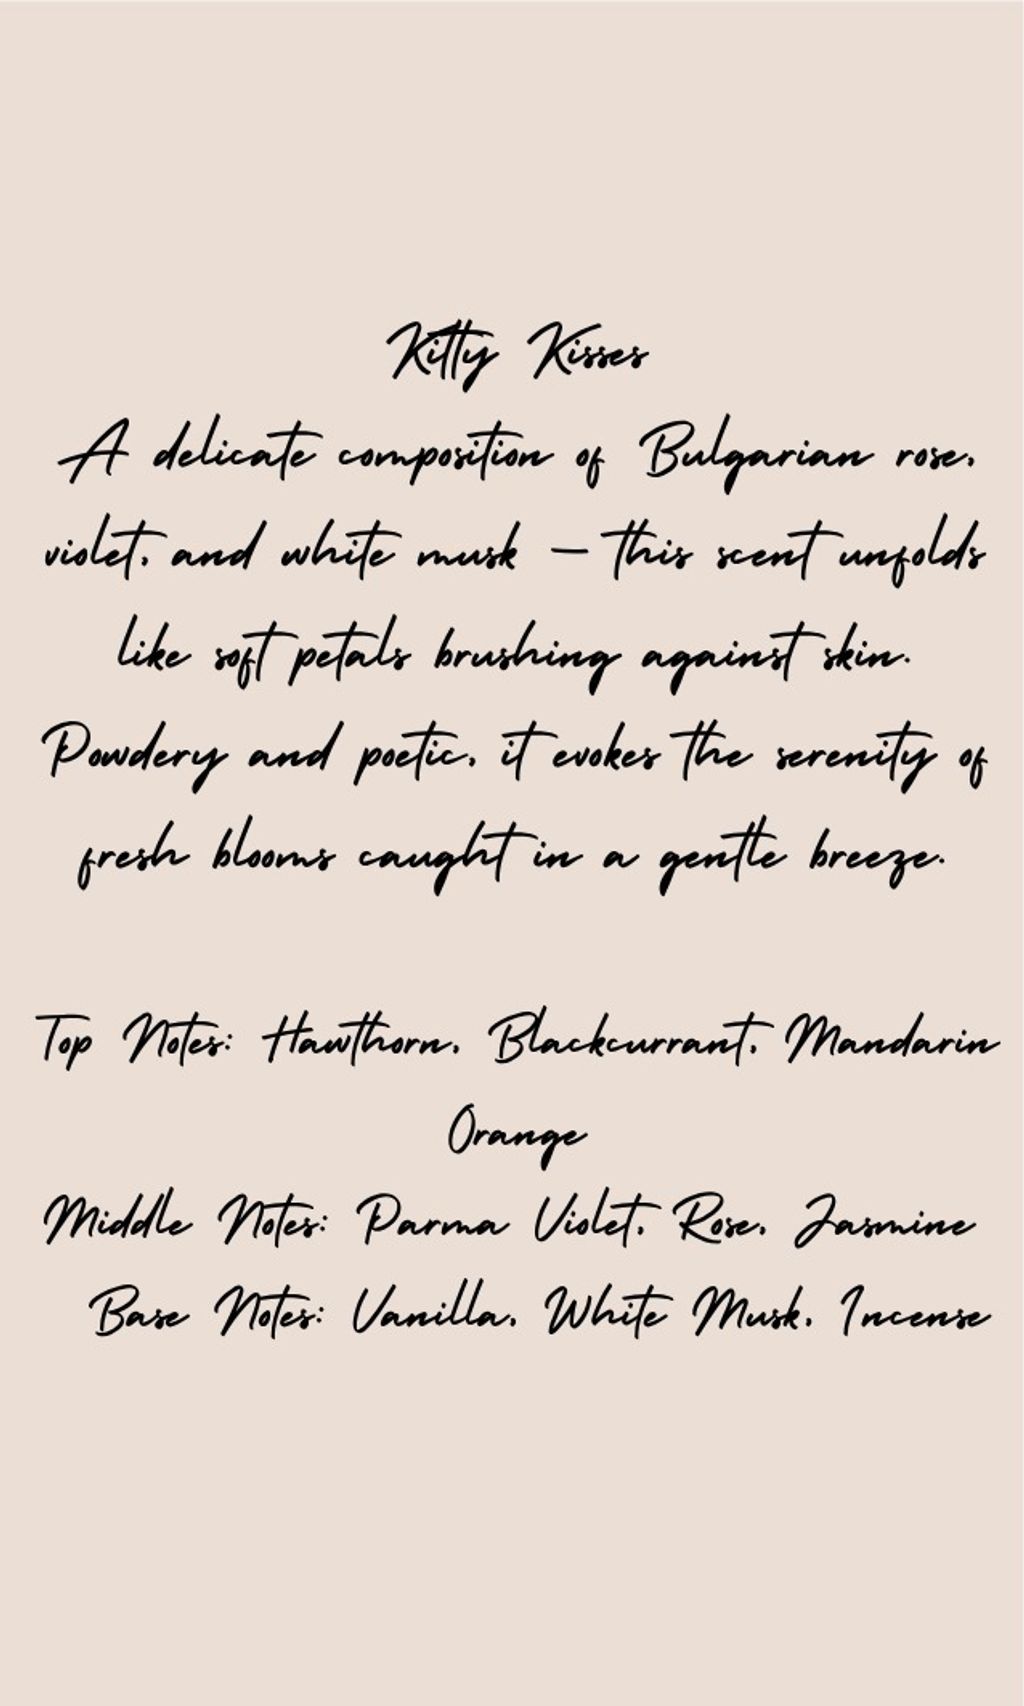 Kitty Kisses
A delicate composition of Bulgarian rose,
violet, and white musk — this scent unfolds
like soft petals brushing against skin.
Powdery and poetic, it evokes the serenity of
fresh blooms caught in a gentle breeze.
Top Notes: Hawthorn, Blackcurrant, Mandarin
Orange
Middle Notes: Parma Violet, Rose, Jasmine
Base Notes: Vanilla, White Musk, Incense